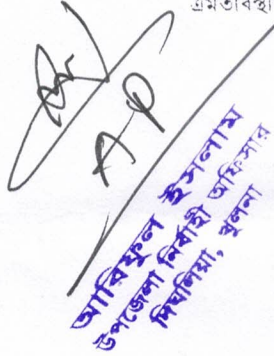 এমতাবস্থা
আরিফুল ইসলাম
উপজেলা নির্বাহী অফিসার
দিঘলিয়া, খুলনা